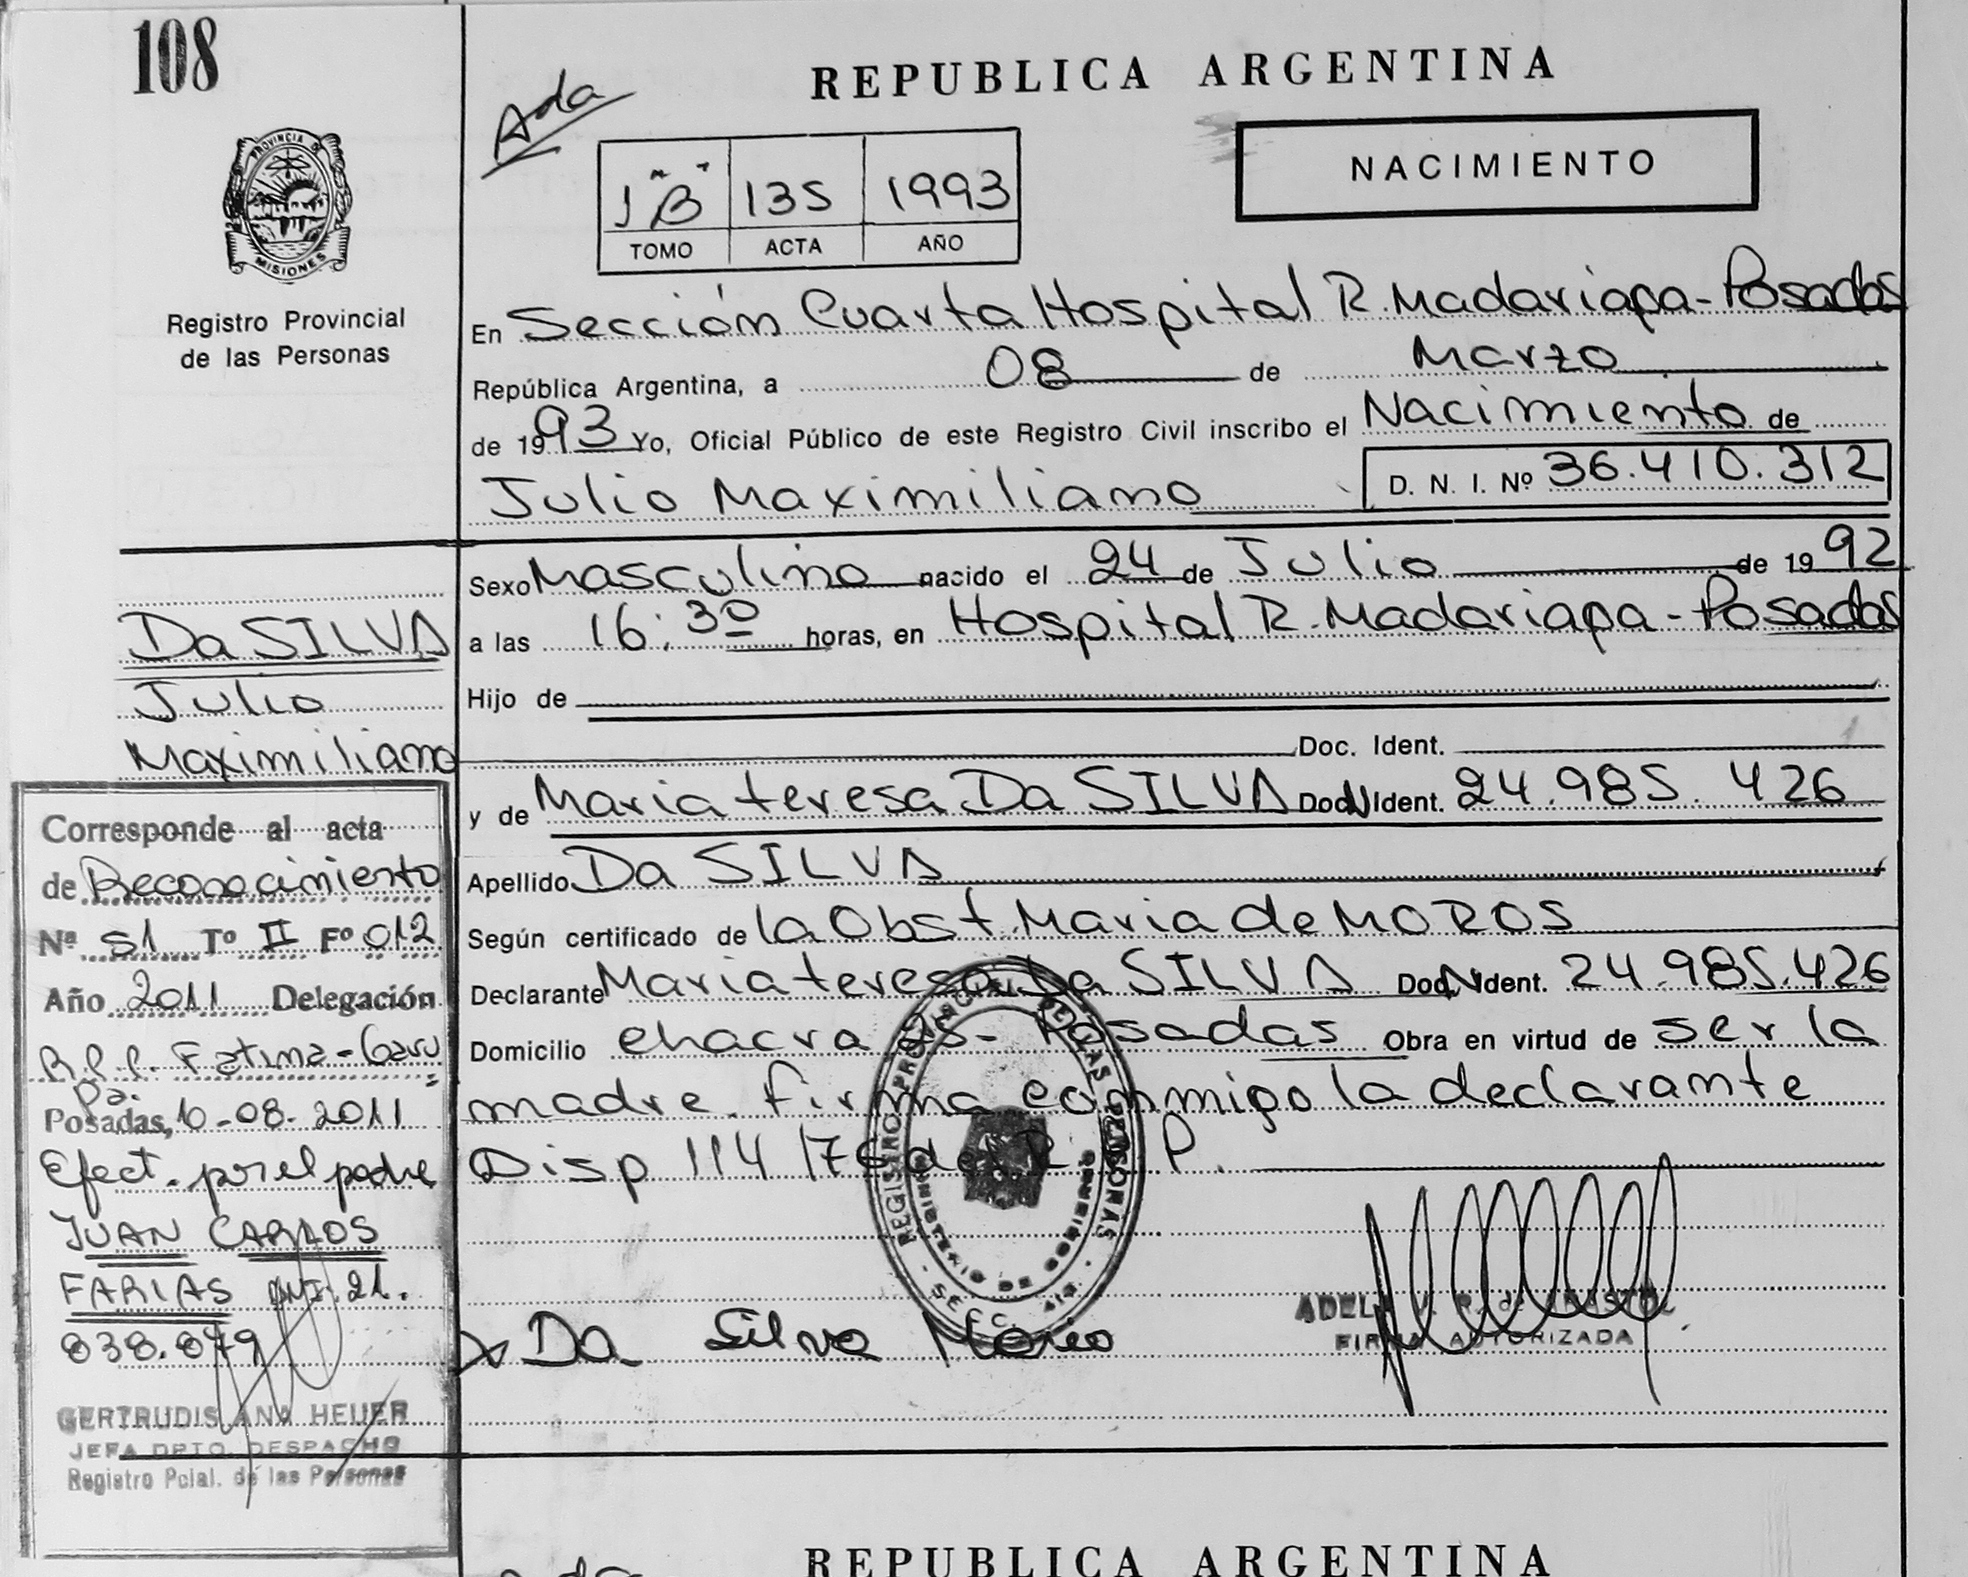 108
REPUBLICA ARGENTINA
Ada
NACIMIENTO
1 "B" 135 1993
TOMO ACTA AÑO
PROVINCIA DE
MISIONES
Registro Provincial
de las Personas
En Sección Cuarta Hospital R. Madariaga - Posadas
República Argentina, a 08 de Marzo
de 1993 Yo, Oficial Público de este Registro Civil inscribo el Nacimiento de
Julio Maximiliano D. N. I. Nº 36.410.312
Sexo Masculino nacido el 24 de Julio de 1992
a las 16:30 horas, en Hospital R. Madariaga - Posadas
Hijo de
Doc. Ident.
y de Maria teresa Da SILVA Doc. Ident. 24.985.426
Apellido Da SILVA
Según certificado de la Obst. Maria de MOROS
Declarante Maria teresa Da SILVA Doc. Ident. 24.985.426
Domicilio chacra Posadas Obra en virtud de ser la
madre. firma conmigo la declarante
Disp 114/76 P.
REGISTRO PROVINCIAL DE LAS PERSONAS
MINISTERIO DE GOBIERNO
SECC. 4ta.
Da Silva
FIRMA AUTORIZADA
Da SILVA
Julio
Maximiliano
Corresponde al acta
de Reconocimiento
Nº 51 Tº II Fº 012
Año 2011 Delegación
R.P.P. Fatima -
Posadas, 10-08-2011
Efect. por el padre
JUAN CARLOS
FARIAS DNI 21.
838.879
GERTRUDIS ANA HEUER
JEFA DPTO. DESPACHO
Registro Pcial. de las Personas
REPUBLICA ARGENTINA